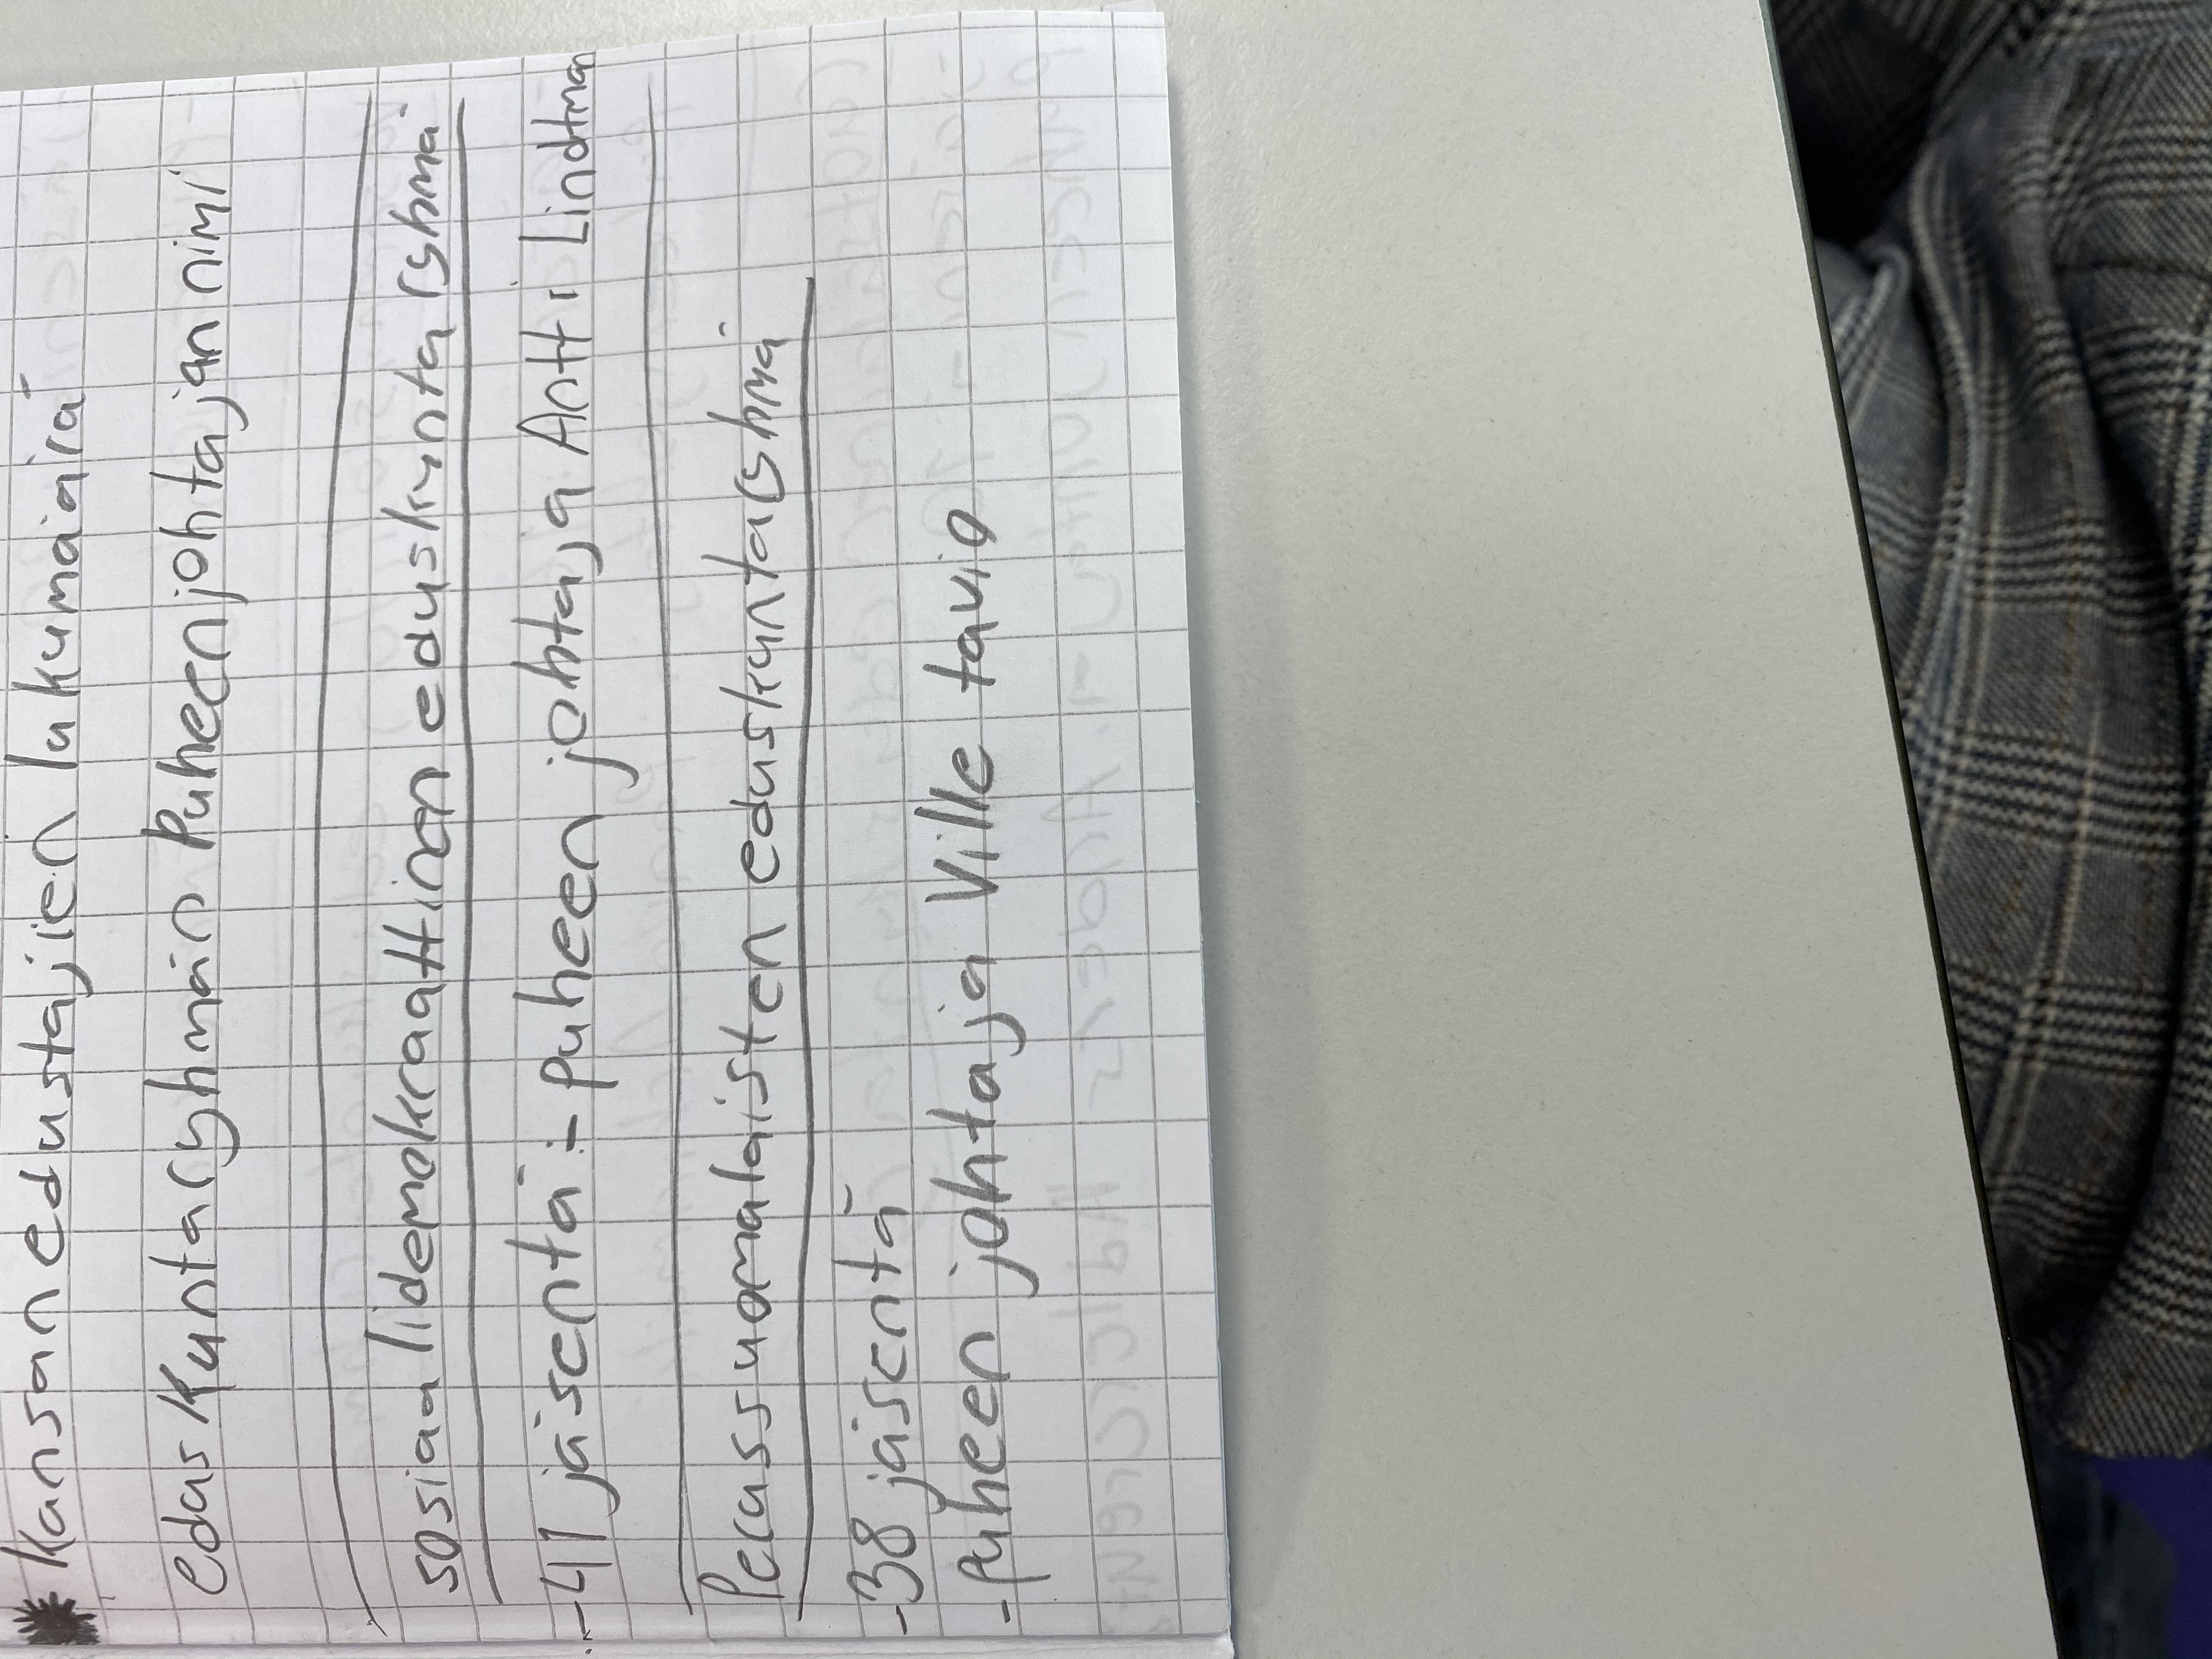 Kansan edustajien lukumäärä
edusKuntaryhmän Puheenjohtajan nimi
sosiaalidemokraattinen eduskunta ryhmä
-41 jäsentä - puheen johtaja Antti Lindtman
Perussuomalaisten eduskuntaryhmä
-38 jäsentä
-puheen johtaja Ville tavio